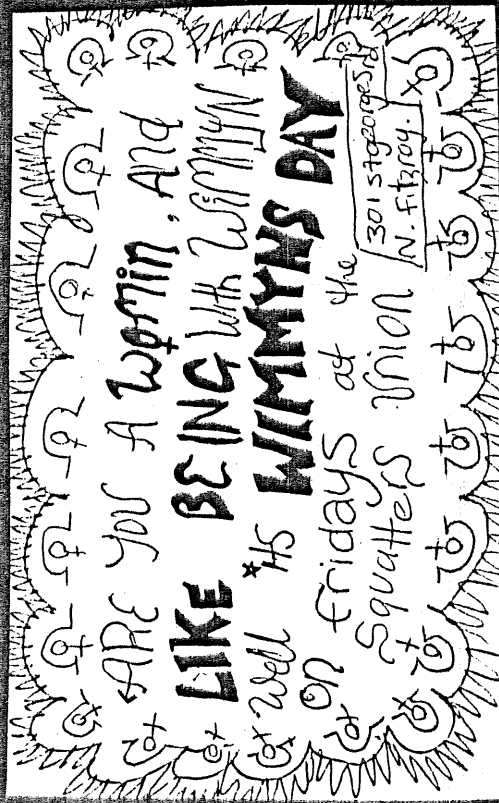 ARE YOU A Womin, And
LIKE BEING With WIMMYN
Well *its WIMMYNS DAY
on Fridays at the
Squatters Union
301 st georges rd
N. Fitzroy.